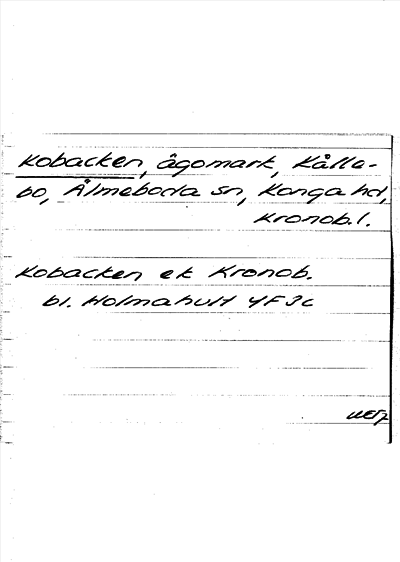 Kobacken, ägomark, Kålle-
bo, Älmeboda sn, Konga hd,
Kronob.l.
Kobacken ek Kronob.
bl. Holmahult 4F3c